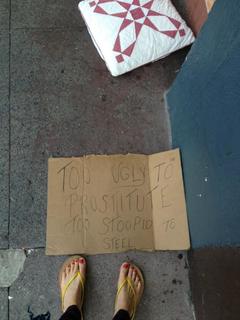 TOO UGLY TO
PROSTITUTE
TOO STOOPID TO
STEEL